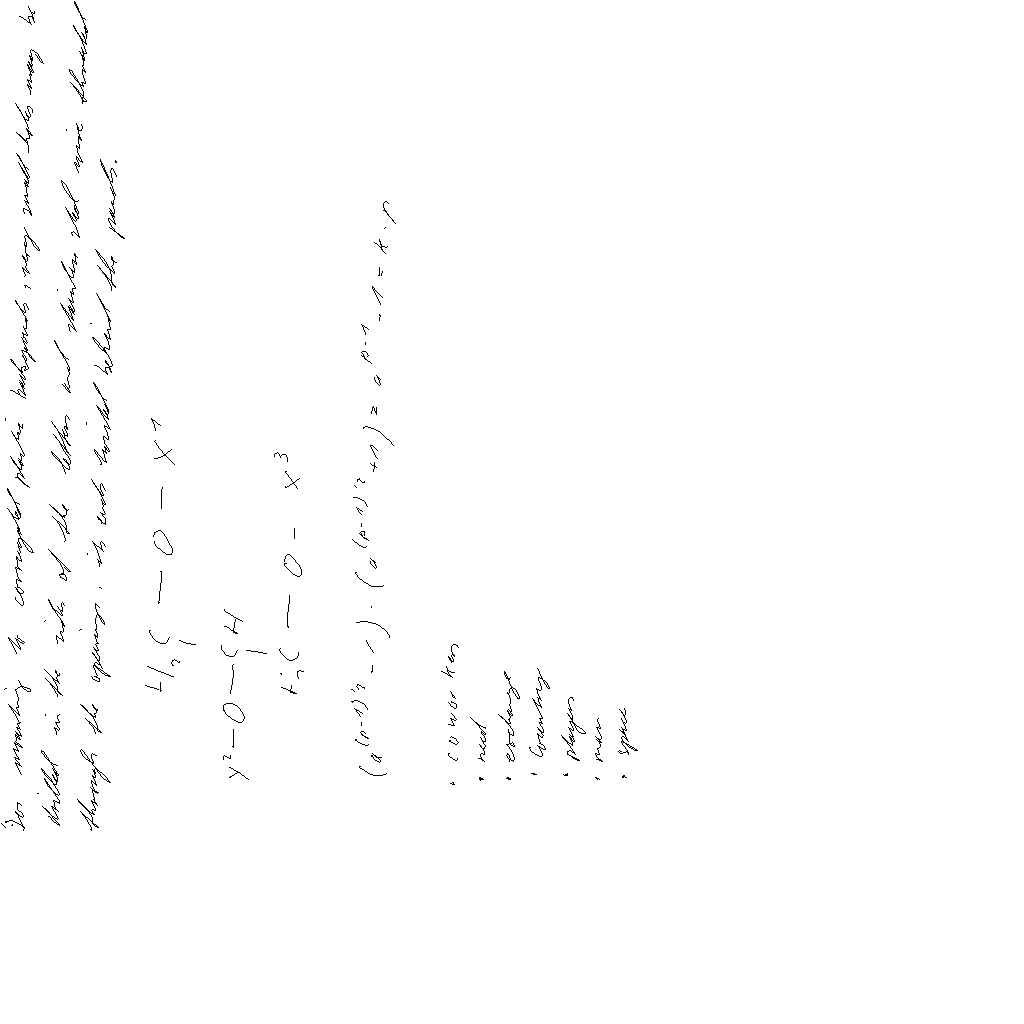 For mounting to corrugated plastic backgrounds, very small holes may be
drilled in the sides of the letters and stainless steel wire threaded
through the openings, its ends twisted behind the panels.
H₂C — O — X¹
Y² — O — CH
H₂C — O — X³
(a^(p-1)'² - 1) · (a^(p-1)'² + 1) = a^p-1 - 1 = k · p
• coworker
• need
• exchange
• Country
• players
• man
• space